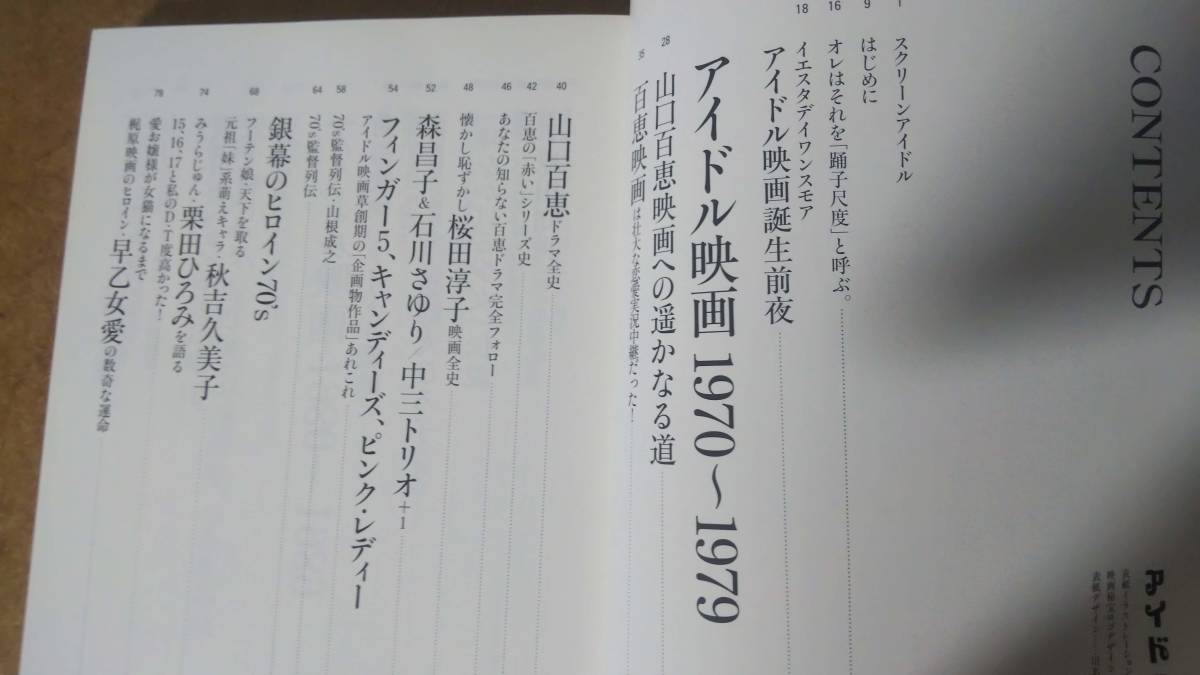 CONTENTS
1
スクリーンアイドル
9
はじめに
16
オレはそれを「踊子尺度」と呼ぶ。
18
イエスタデイワンスモア
アイドル映画誕生前夜
アイドル映画 1970〜1979
28
山口百恵映画への遥かなる道
35
百恵映画は壮大な恋愛実況中継だった！
40
山口百恵ドラマ全史
42
百恵の「赤い」シリーズ史
46
あなたの知らない百恵ドラマ完全フォロー
48
懐かし恥ずかし桜田淳子映画全史
52
森昌子&石川さゆり/中三トリオ+1
54
フィンガー5、キャンディーズ、ピンク・レディー
アイドル映画草創期の「企画物作品」あれこれ
58
70's監督列伝・山根成之
64
70's監督列伝
銀幕のヒロイン70's
68
フーテン娘・天下を取る
元祖「妹」系萌えキャラ・秋吉久美子
74
みうらじゅん・栗田ひろみを語る
15、16、17と私のD・T度高かった！
79
愛お嬢様が女猫になるまで
梶原映画のヒロイン・早乙女愛の数奇な運命
アイド
表紙イラストレーション
映画秘宝ロゴデザイン
表紙デザイン